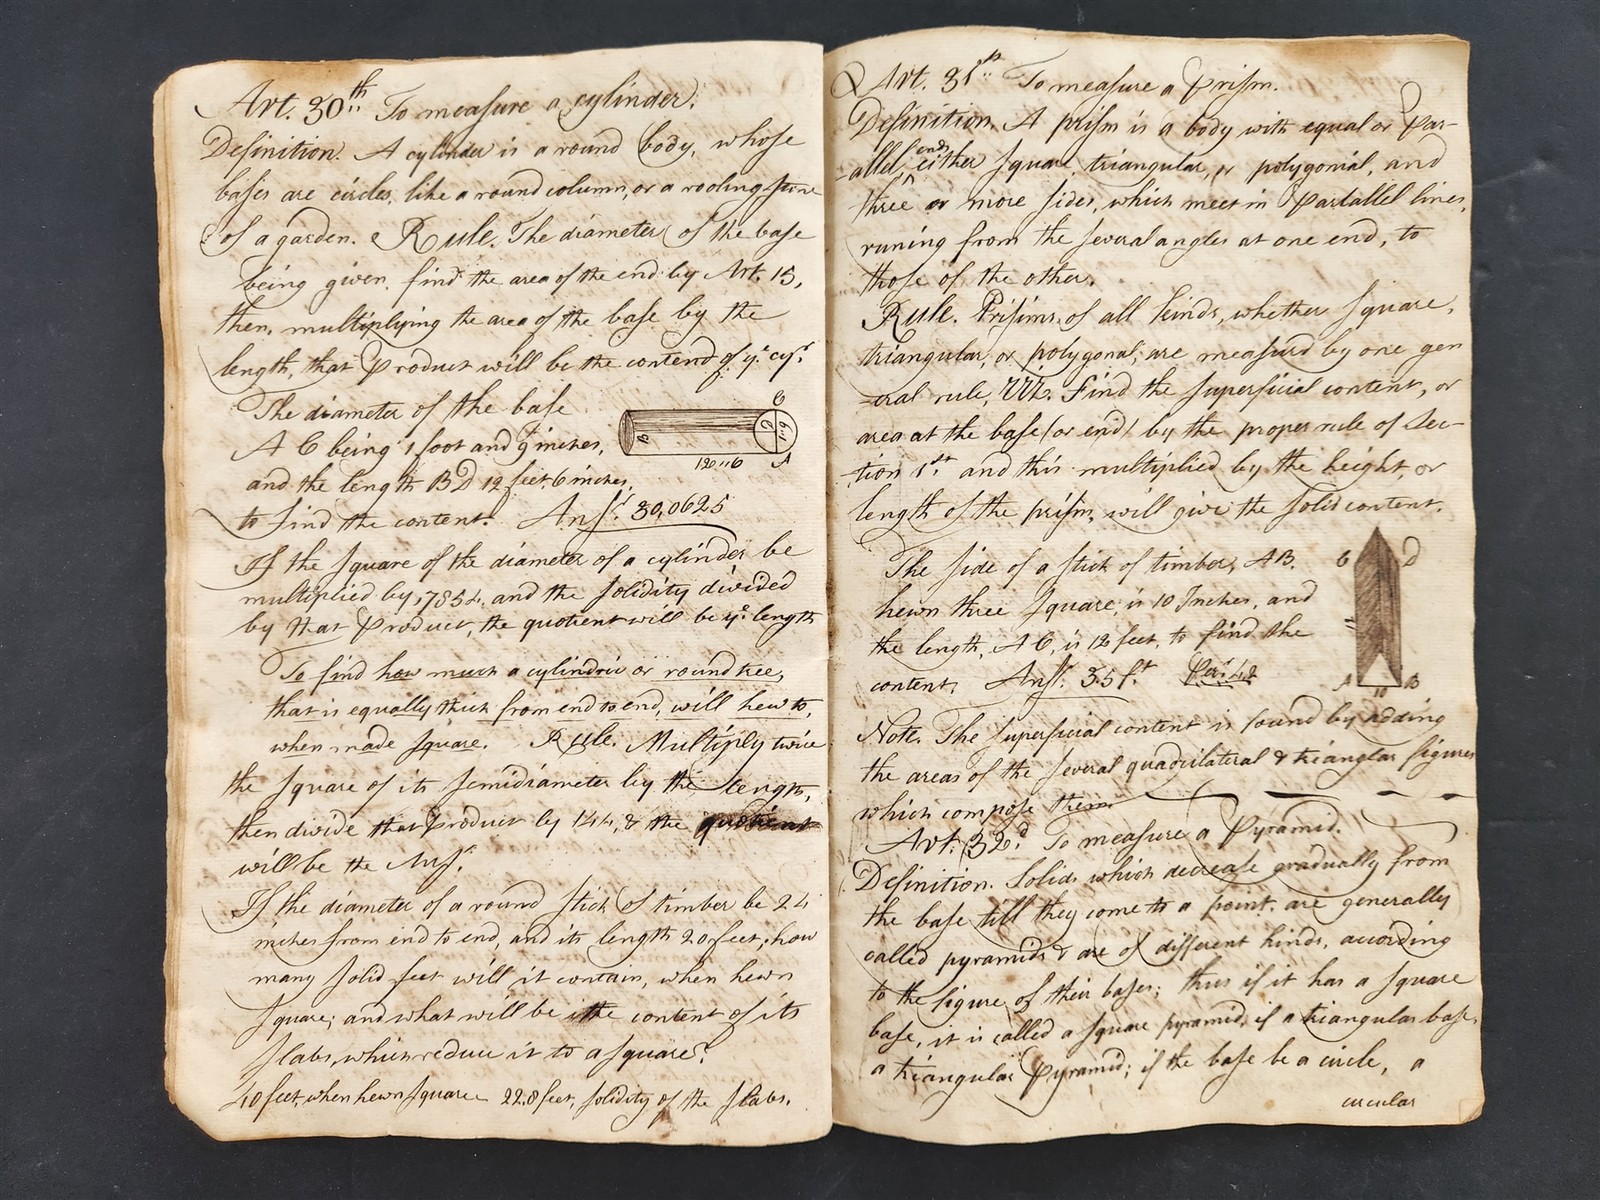 Art. 30th To measure a cylinder.
Definition. A cylinder is a round body, whose
bases are circles, like a round column, or a rooling stone
of a garden. Rule. The diameter of the base
being given, find the area of the end by Art. 15,
then, multiplying the area of the base by the
length, that Product will be the contend of ye cyr
The diameter of the base
A C being 1 foot and 9 inches,
and the length B D 12 feet 6 inches,
to find the content. Ansr. 30,0625
C
B
D
1.9
12..6
A
If the square of the diameter of a cylinder be
multiplied by ,7854, and the solidity divided
by that Product, the quotient will be ye length
To find how much a cylindric or round tree,
that is equally thick from end to end, will hew to,
when made square. Rule. Multiply twice
the square of its semidiameter by the length,
then divide that Product by 144, & the quotient
will be the Ansr.
If the diameter of a round stick of timber be 24
inches from end to end, and its length 20 feet; how
many solid feet will it contain, when hewn
square; and what will be the content of its
slabs, which reduce it to a square?
40 feet, when hewn square 22.8 feet, solidity of the slabs.
Art. 31st To measure a Prism.
Definition. A prism is a body with equal or Par-
allel ends either square, triangular, or polygonial, and
three or more sides, which meet in Partallel lines,
runing from the several angles at one end, to
those of the other.
Rule. Prisims of all kinds, whether square,
triangular, or polygonal, are measurd by one gen
-eral rule, VIZ. Find the superficial content, or
area at the base (or end) by the proper rule of Sec-
-tion 1st and this multiplied by the height, or
length of the prism, will give the solid content.
The side of a stick of timber, A B.
hewn three square, is 10 Inches, and
the length, A C, is 12 feet, to find the
content. Ansr. 3.5 ft
C
D
12
A
10
B
Note. The superficial content is found by adding
the areas of the several quadrilateral & trianglar figures
which compose them
Art. 32d To measure a Pyramid.
Definition. Solids which decrease gradually from
the base till they come to a point, are generally
called pyramids & are of different kinds, according
to the figure of their bases; thus if it has a square
base, it is called a square pyramid, if a triangular base,
a triangular Pyramid; if the base be a circle, a
circular